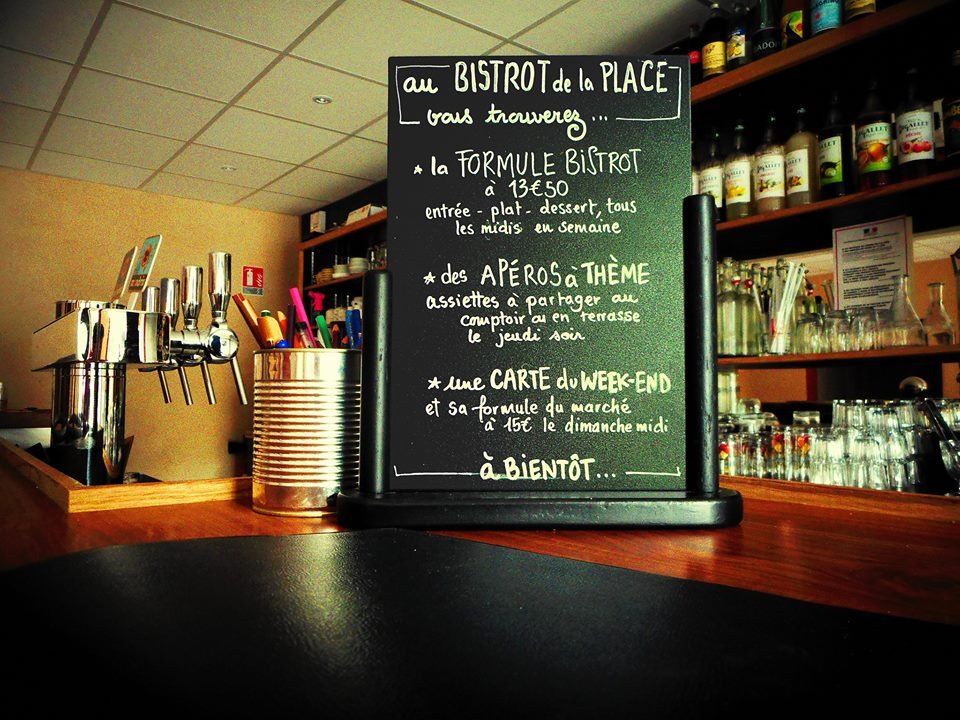 au BISTROT de la PLACE
vous trouverez...
* la FORMULE BISTROT
à 13€50
entrée - plat - dessert, tous
les midis en semaine
* des APÉROS à THÈME
assiettes à partager au
comptoir ou en terrasse
le jeudi soir
* une CARTE du WEEK-END
et sa formule du marché
à 15€ le dimanche midi
à BIENTÔT...